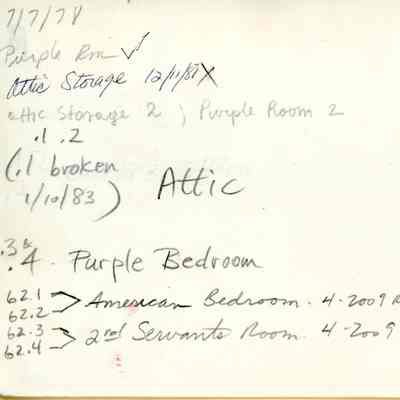 7/7/78
Purple Rm ✓
Attic Storage 12/11/81 X
attic Storage 2 ; Purple Room 2
.1 .2
(.1 broken
1/10/83)
Attic
.3 &
.4 - Purple Bedroom
62.1
62.2 > American Bedroom. 4-2009
62.3
62.4 > 2nd Servants Room. 4-2009